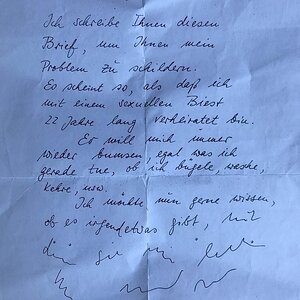 Ich schreibe Ihnen diesen
Brief, um Ihnen mein
Problem zu schildern.
Es scheint so, als daß ich
mit einem sexuellen Biest
22 Jahre lang verheiratet bin.
Er will mich immer
wieder bumsen, egal was ich
gerade tue, ob ich bügele, wasche,
kehre, usw.
Ich möchte nun gerne wissen,
ob es irgendetwas gibt, mit